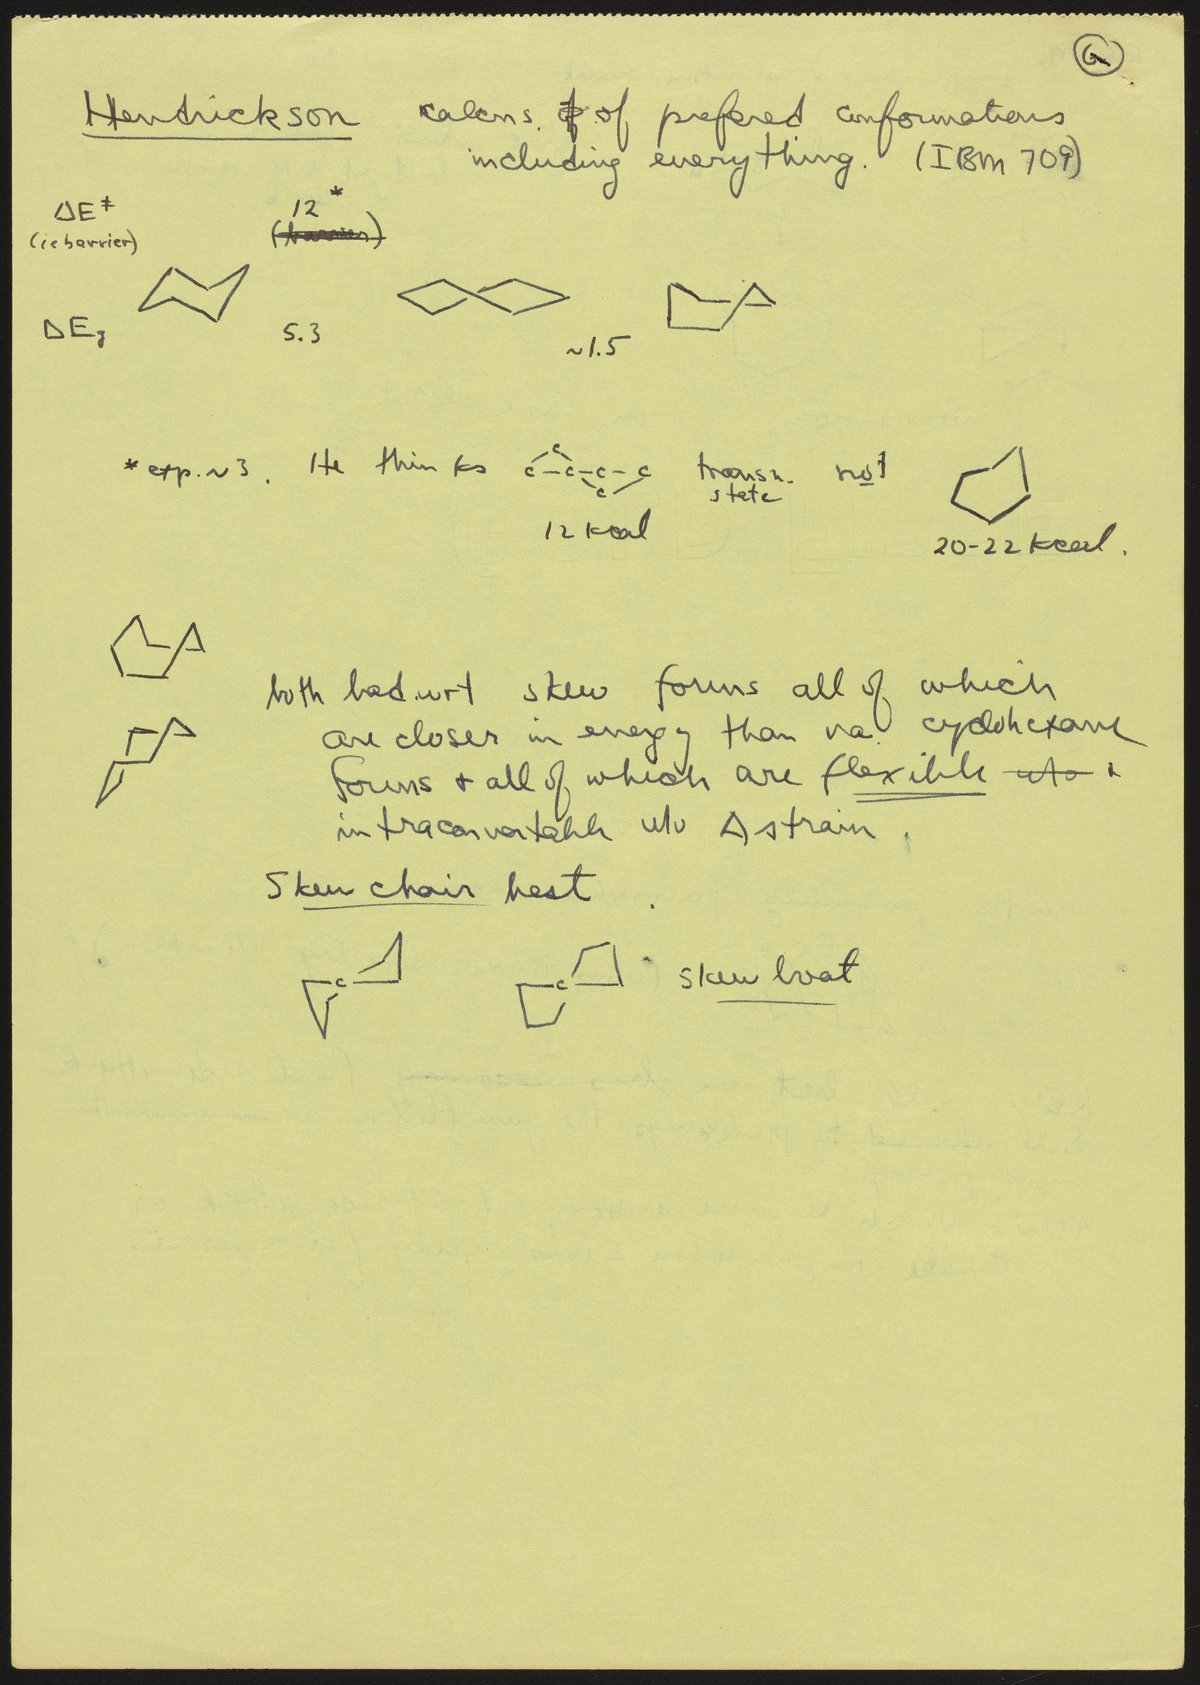 6
Hendrickson calcns. of prefered conformations
including everything. (IBM 709)
ΔE‡ 12*
(ie barrier) (barrier)
ΔE 5.3 ~1.5
* exp. ~ 3. He thinks C-C-C-C C C transn. state not
12 kcal 20-22 kcal.
both bad wrt skew forms all of which
are closer in energy than va. cyclohexane
forms + all of which are flexible w/o &
intraconvertable w/o Δ strain.
Skew chair best.
C C skew boat